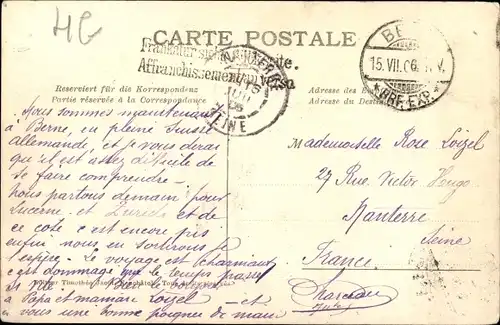 HG
CARTE POSTALE
Frankatur siehe Rückseite.
Affranchissement au verso
NANTERRE
15
JUIL
06
SEINE
BE
15.VII.06. V.
BRF. EXP.
Reserviert für die Korrespondenz
Partie réservée à la Correspondance
Adresse des
Adresse du Destinat
Nous sommes maintenant
à Berne, en pleine Suisse
allemande, et je vous dirai
qu'il est assez difficile de
se faire comprendre —
Nous partons demain pour
Lucerne, et Zurich et de
ce côté c'est encore pis
enfin nous en sortirons je
l'espère. Le voyage est charmant
c'est dommage que le temps passe
si vite — Bien des choses
à Papa et maman Loizel — et
à vous une bonne poignée de main
Mademoiselle Rose Loizel
27 Rue Victor Hugo
Nanterre
Seine
France